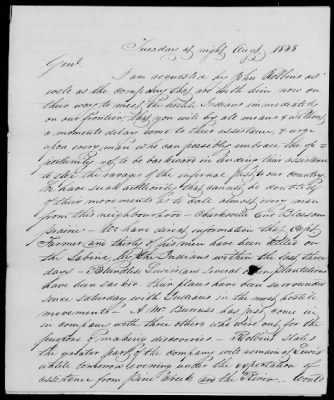 Tuesday at night Augt. 1838
Genl.
I am requested by John Robbins as
well as the company that are with him now on
their way to meet the hostile Indians immediately
on our frontier, that you will by all means & without
a moments delay come to their assistance, & urge
upon every man who can possibly embrace the op-
portunity not to be backward in lending their assistance
to stop the ravage of the infernal in our country
We have such authority that cannot be doubted
of their movements as to call almost every man
from this neighbourhood - Clarksville and Blossom
Prairie - We have direct information that Capt
Farmer and thirty of his men have been killed on
the Sabine by the Indians within the last three
days - Lewis and several other plantations
have been sacked this places have been surrounded
since saturday with Indians in the most hostile
movements - A Mr. has just come in
in company with three others who went out for the
purpose of making discoveries - Robbins states
the greater part of the company will remain at Lewis
untill tomorrow evening under the expectation of
assistance from Pine Creek and the River - Could